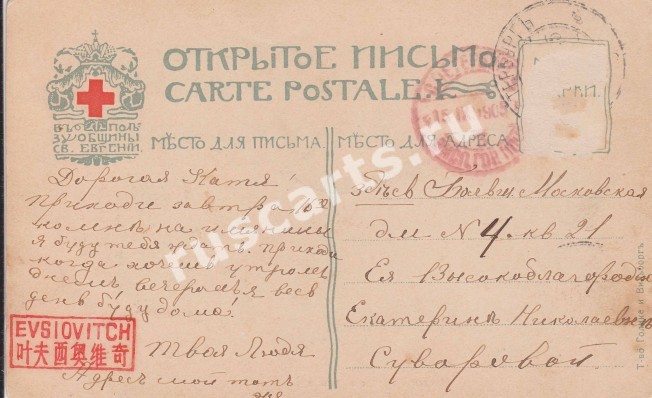 ОТКРЫТОЕ ПИСЬМО.
CARTE POSTALE.
ВЪ ПОЛЬ
ЗУ ОБЩИНЫ
СВ. ЕВГЕНІИ.
МѢСТО ДЛЯ ПИСЬМА.
МѢСТО ДЛЯ АДРЕСА
МАРКИ.
Дорогая Катя!
Приходи завтра
ко мнѣ на имянины
я буду тебя ждать. приходи
когда хочешь утромъ
днемъ вечеромъ я весь
день буду дома!
Твоя Людя
Адресъ мой тотъ
же
Здѣсь Московская
дм N 4. кв 21
Ея Высокоблагородію
Екатеринѣ Николаевнѣ
Суваровой.
EVSIOVITCH
叶夫西奥维奇
Т-во Голике и Вильборгъ
ruscarts.ru